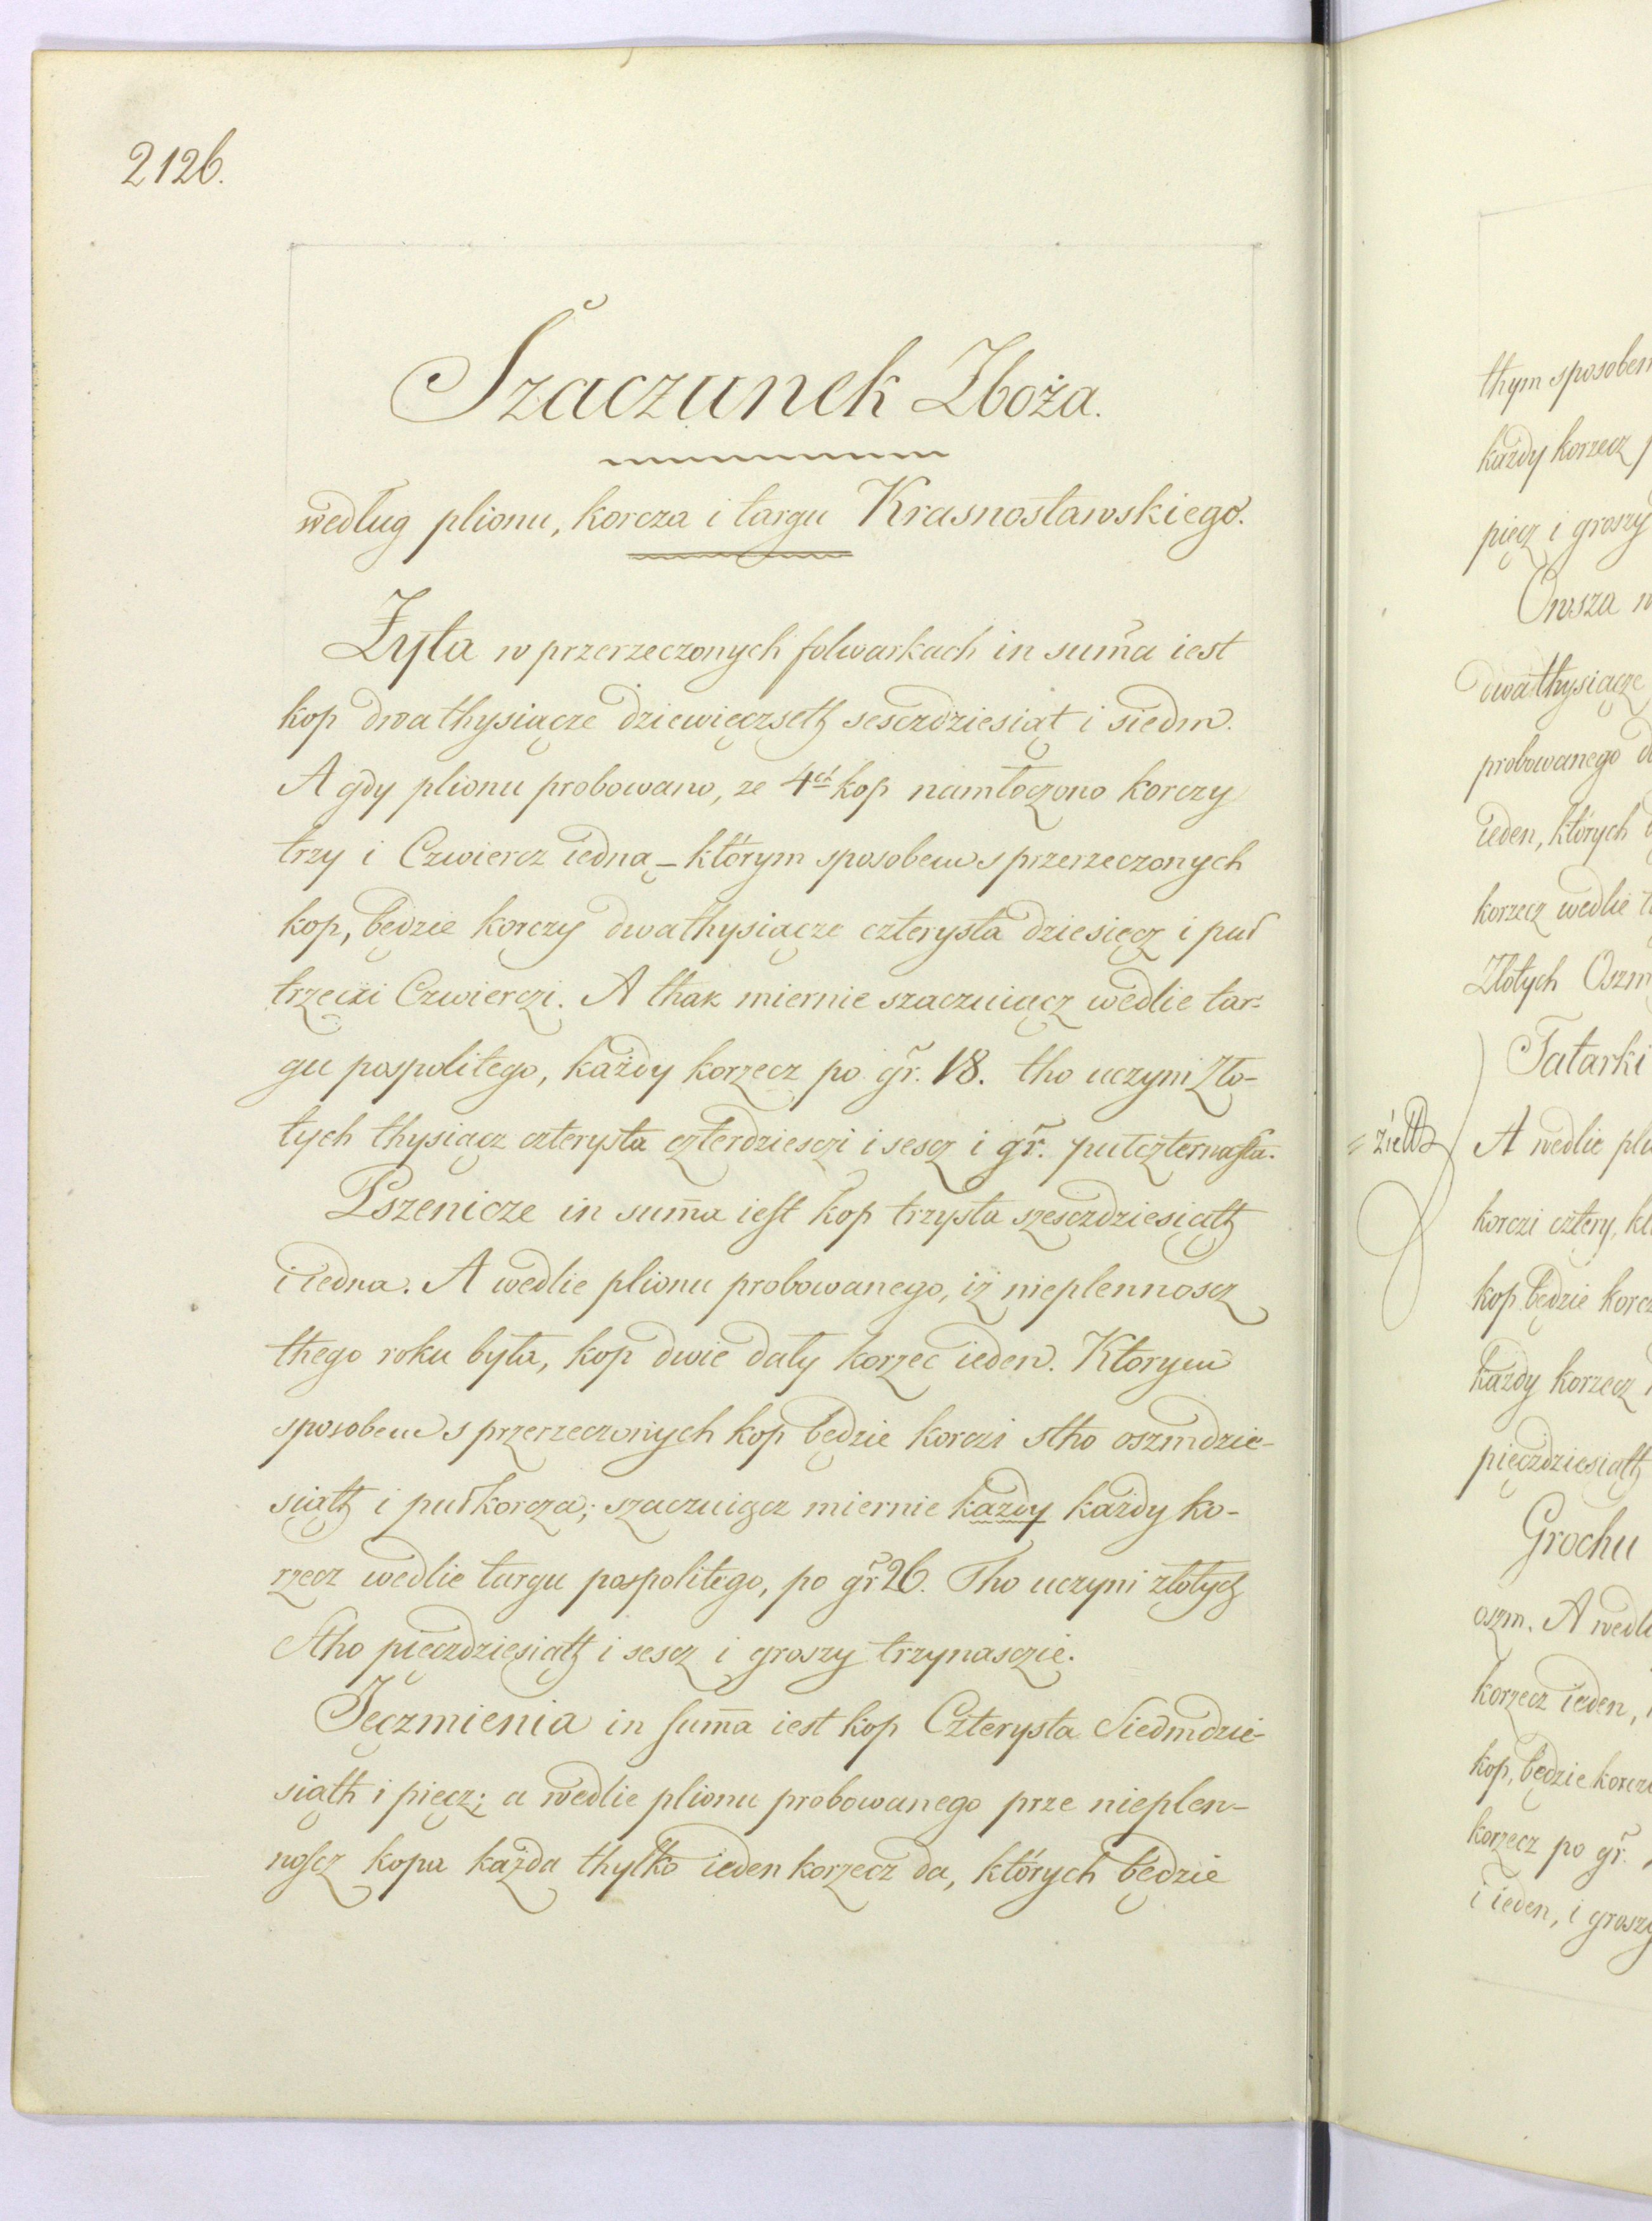 2126.
Szaczunek Zboża.
według plionu, korcza i targu Krasnostawskiego.
Żyta w przerzeczonych folwarkach in sum̃a iest
kop dwathysiącze dziewięczseth sesczdziesiąt i siedm.
A gdy plionu probowano, ze 4ch kop namłoczono korczy
trzy i Czwiercz iedną – którym sposobem s przerzeczonych
kop, będzie korczy dwathysiącze czterysta dziesięcz i puł
trzeczi Czwierczi. A thak miernie szaczuiącz wedlie tar-
gu pospolitego, każdy korzecz po gr. 18. tho uczyni Zło-
tych thysiącz czterysta czterdziesczi i sescz i gr. pułczternasta.
Pszenicze in sum̃a iest kop trzysta szesczdziesiąth
i iedna. A wedlie plionu probowanego, iż nieplennoscz
thego roku była, kop dwie dały korzec ieden. Którym
sposobem s przerzeczonych kop będzie korczi stho oszmdzie-
siąth i pułkorcza; szaczuiącz miernie każdy każdy ko-
rzecz wedlie targu pospolitego, po gr 26. Tho uczyni złotych
Stho pięczdziesiąth i sescz i groszy trzynasczie.
Jęczmienia in sum̃a iest kop Czterysta Siedmdzie-
siąth i pięcz; a wedlie plionu probowanego prze nieplen-
noscz kopa każda thylko ieden korzecz da, których będzie
thym sposobem
każdy korzecz
pięcz i groszy
Owsza
dwathysiącze
probowanego
ieden, których
korzecz wedlie
Złotych Oszm
Tatarki
A wedlie
korczi cztery,
kop będzie
każdy korzecz
pięczdziesiąth
Grochu
oszm. A
korzecz ieden,
kop, będzie
korzecz po gr.
i ieden, i